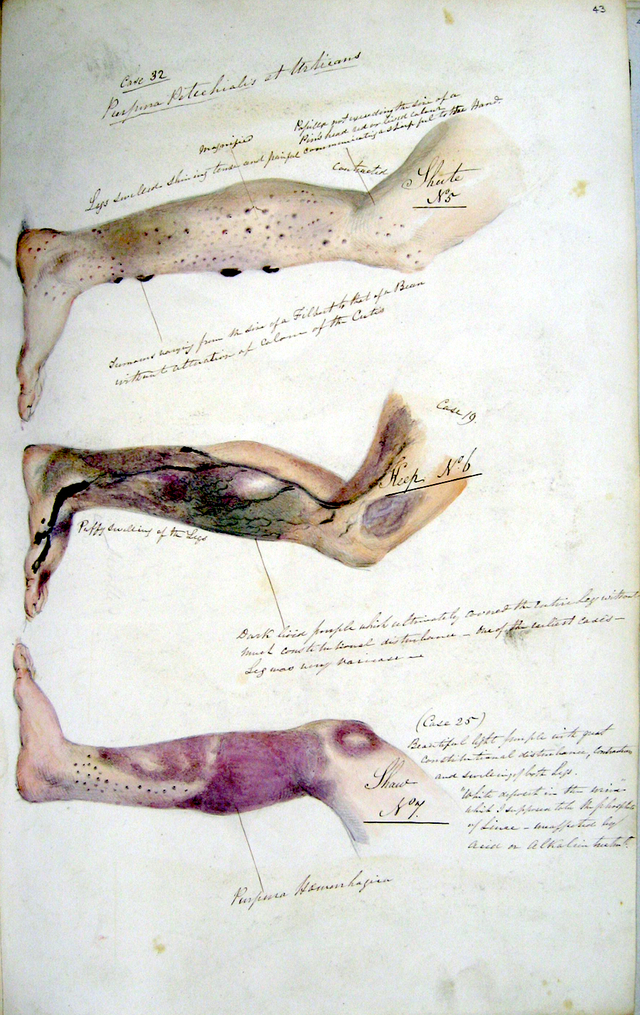 43
Case 32
Purpura Petechialis et Urticans
magnified
Papillæ not exceeding the size of a
Pins head red or livid colour
Legs swelled shining tense and painful communicating a sharp feel to the Hand.
Contracted
Shute
No 5
Tumours varying from the size of a Filbert to that of a Bean
without alteration of Colour of the Cutis
Case 19.
Heep No. 6
Puffy swelling of the Legs
Dark livid purple which ultimately covered the entire Leg without
much constitutional disturbance – One of the earliest cases –
Leg was very varicose –
(Case 25)
Beautiful light purple with great
Constitutional disturbance, Contraction
and swelling of both Legs.
"White deposit in the urine
which I suppose to be the phosphate
of Lime – unaffected by
Acid or Alkaline
Shaw
No 7
Purpura Hæmorrhagica